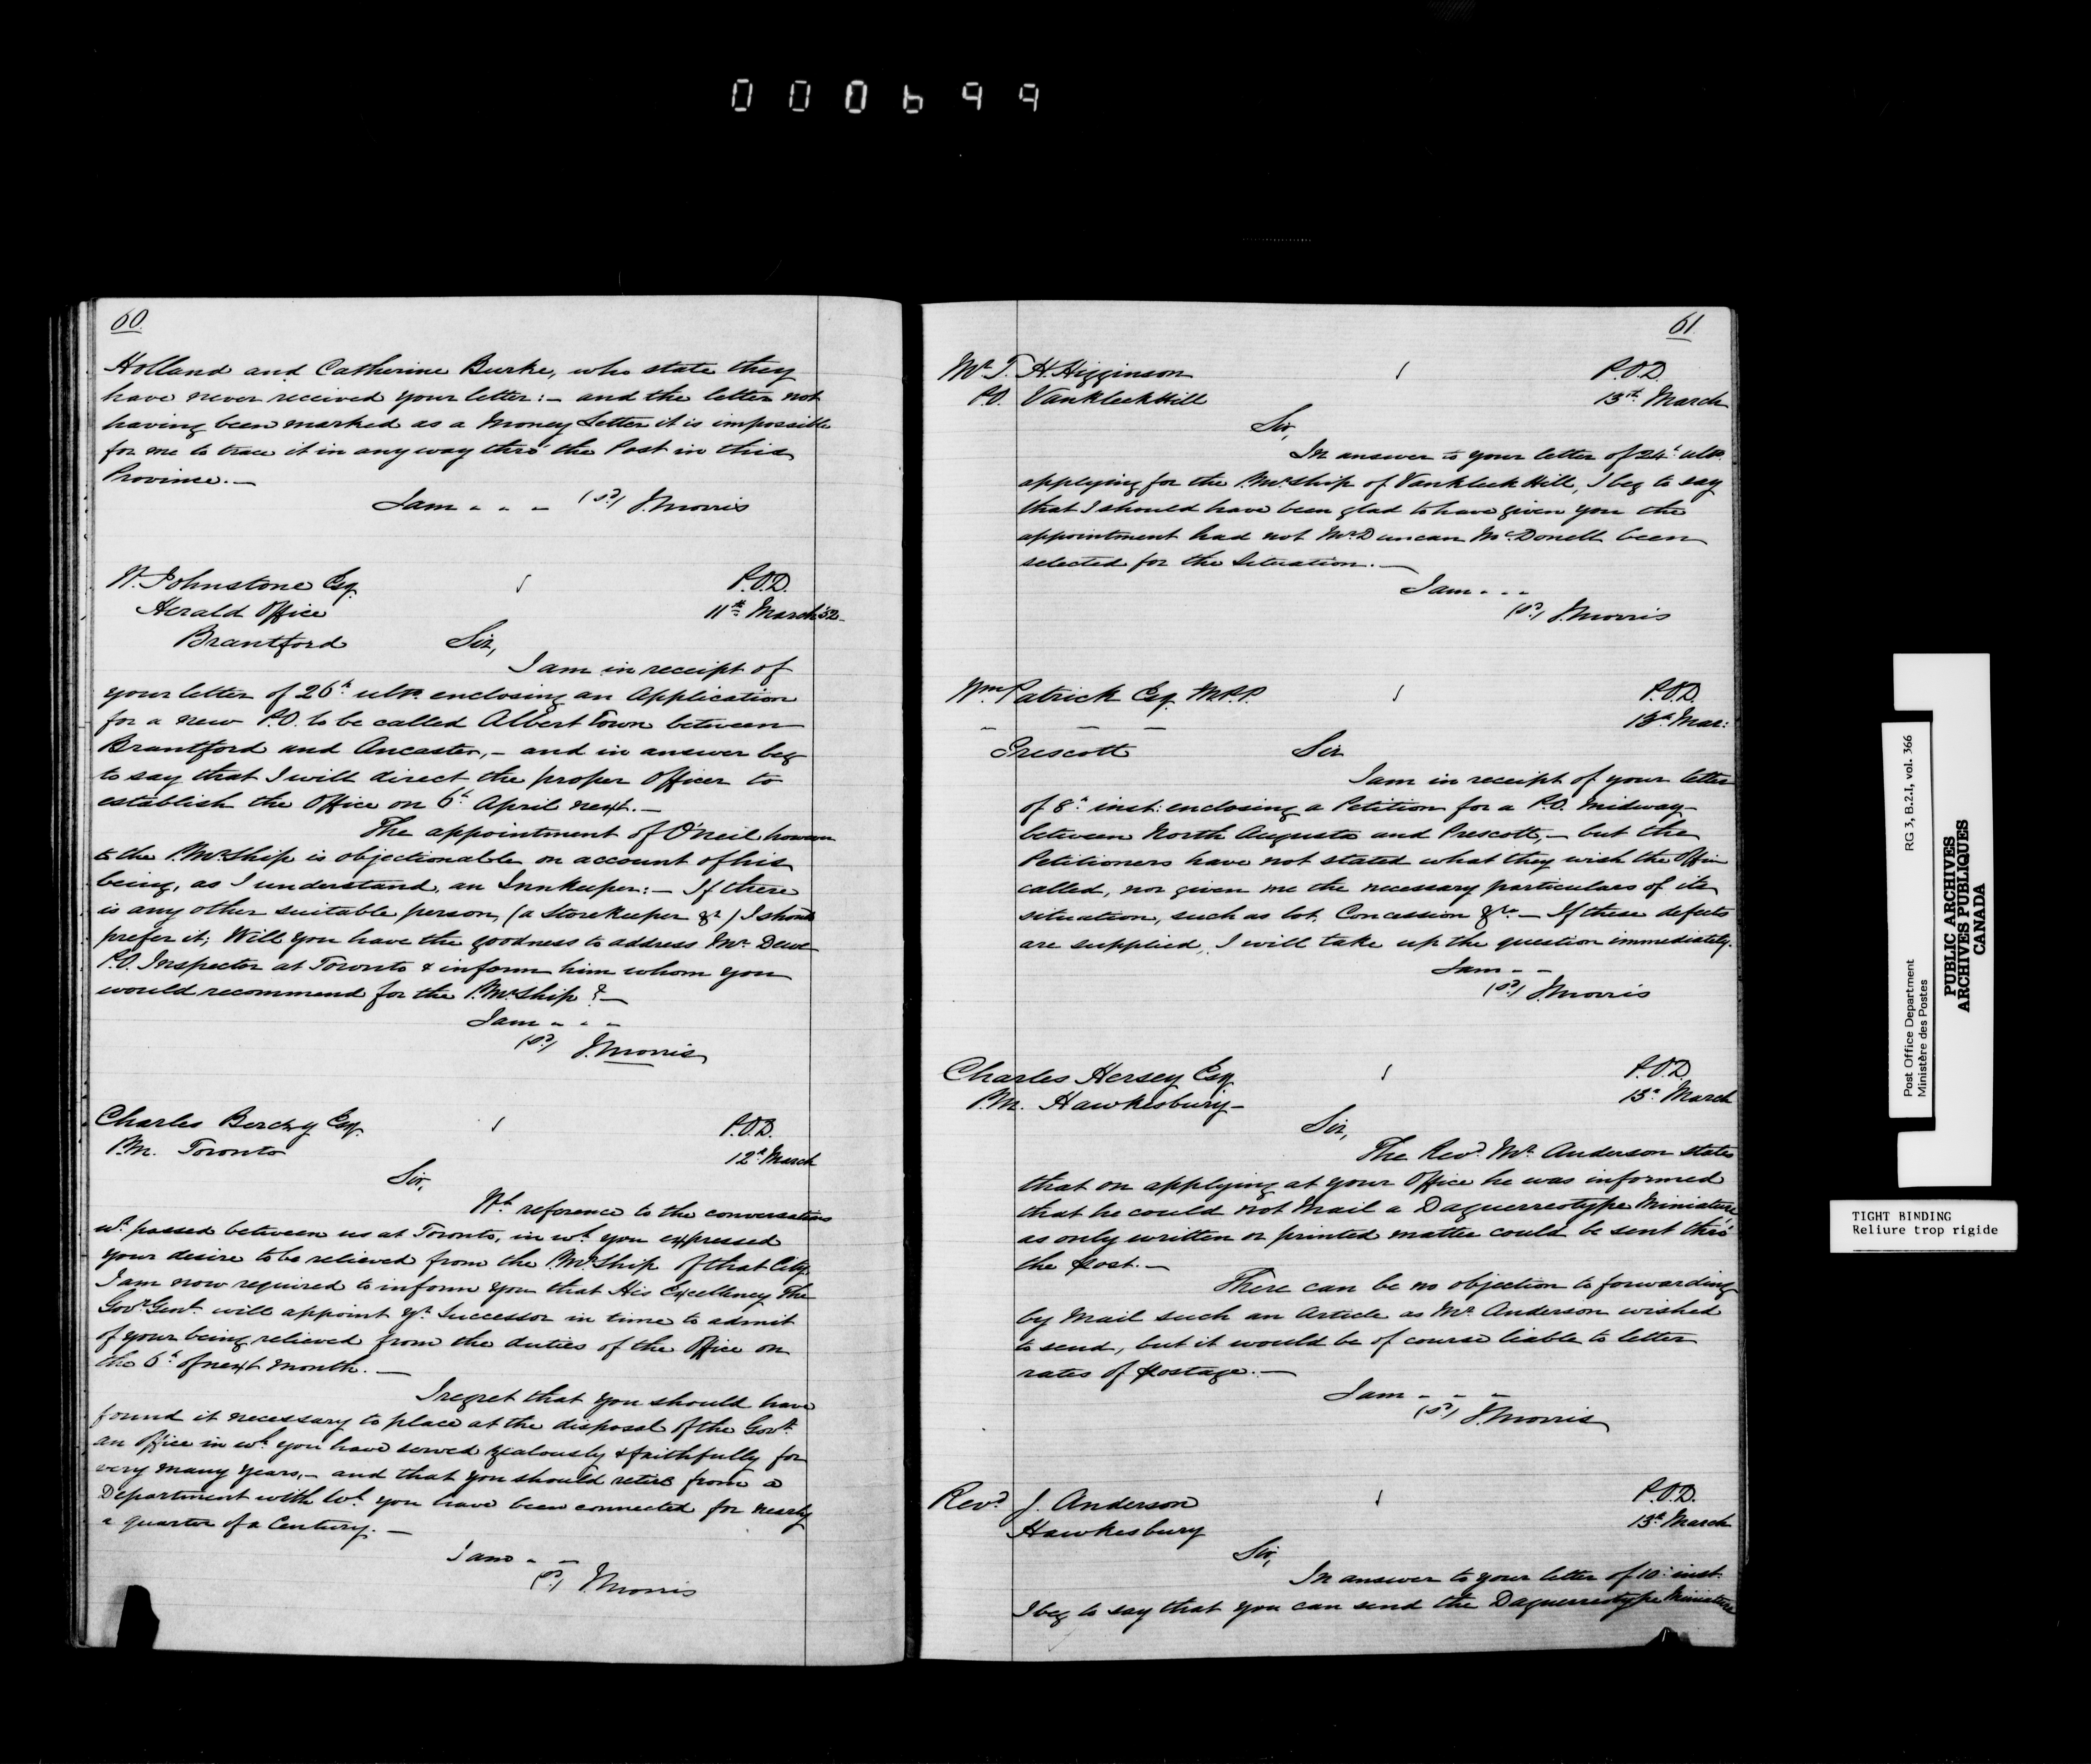 000699
60.
Holland and Catherine Burke, who state they
have never received your letter:— and the letter not
having been marked as a Money Letter it is impossible
for me to trace it in any way thro' the Post in this
Province.—
I am - - - (sd) J. Morris
W. Johnstone Esq. P.O.D.
Herald Office 11th March '52
Brantford Sir,
I am in receipt of
your letter of 26th ulto. enclosing an Application
for a new P.O. to be called Albert Town between
Brantford and Ancaster,— and in answer beg
to say that I will direct the proper Officer to
establish the Office on 6th April next.—
The appointment of O'Neil however
to the P.Mr.Ship is objectionable on account of his
being, as I understand, an Innkeeper:— If there
is any other suitable person, (a Storekeeper &c) I should
prefer it; Will you have the goodness to address Mr. Dewe
P.O. Inspector at Toronto & inform him whom you
would recommend for the P.Mr.Ship?—
I am - - -
(sd) J. Morris
Charles Berczy Esq. P.O.D.
P.M. Toronto 12th March
Sir,
Wh. reference to the conversations
wh. passed between us at Toronto, in wh. you expressed
your desire to be relieved from the P.Mr.Ship of that City
I am now required to inform you that His Excellency The
Govr. Genl. will appoint yr. Successor in time to admit
of your being relieved from the duties of the Office on
the 6th of next month.—
I regret that you should have
found it necessary to place at the disposal of the Govt.
an office in wh. you have served zealously & faithfully for
very many years,— and that you should retire from a
Department with wh. you have been connected for nearly
a quarter of a Century.—
I am - -
(sd) J. Morris
61.
Mr. T. H. Higginson P.O.D.
P.O. VankleekHill 13th March
Sir,
In answer to your letter of 24th ulto.
applying for the P.Mr.ship of Vankleek Hill, I beg to say
that I should have been glad to have given you the
appointment had not Mr. Duncan McDonell been
selected for the Situation.—
I am - - -
(sd) J. Morris
Wm. Patrick Esq. M.P.P. P.O.D.
— — — 13th Mar:
Prescott Sir
I am in receipt of your letter
of 8th inst: enclosing a Petition for a P.O. midway
between North Augusta and Prescott,— but the
Petitioners have not stated what they wish the Office
called, nor given me the necessary particulars of its
situation, such as lot, Concession &c.— If these defects
are supplied, I will take up the question immediately.
I am - -
(sd) J. Morris
Charles Hersey Esq. P.O.D.
P.M. Hawkesbury— 13th March
Sir,
The Revd. Mr. Anderson states
that on applying at your Office he was informed
that he could not Mail a Daguerreotype Miniature,
as only written or printed matter could be sent thro'
the Post.—
There can be no objection to forwarding
by Mail such an Article as Mr. Anderson wished
to send, but it would be of course liable to letter
rates of Postage.—
I am - - -
(sd) J. Morris
Revd. J. Anderson P.O.D.
Hawkesbury 13th March
Sir,
In answer to your letter of 10th inst.
I beg to say that you can send the Daguerreotype Miniature
Post Office Department RG 3, B.2.I, vol. 366
Ministère des Postes
PUBLIC ARCHIVES
ARCHIVES PUBLIQUES
CANADA
TIGHT BINDING
Reliure trop rigide